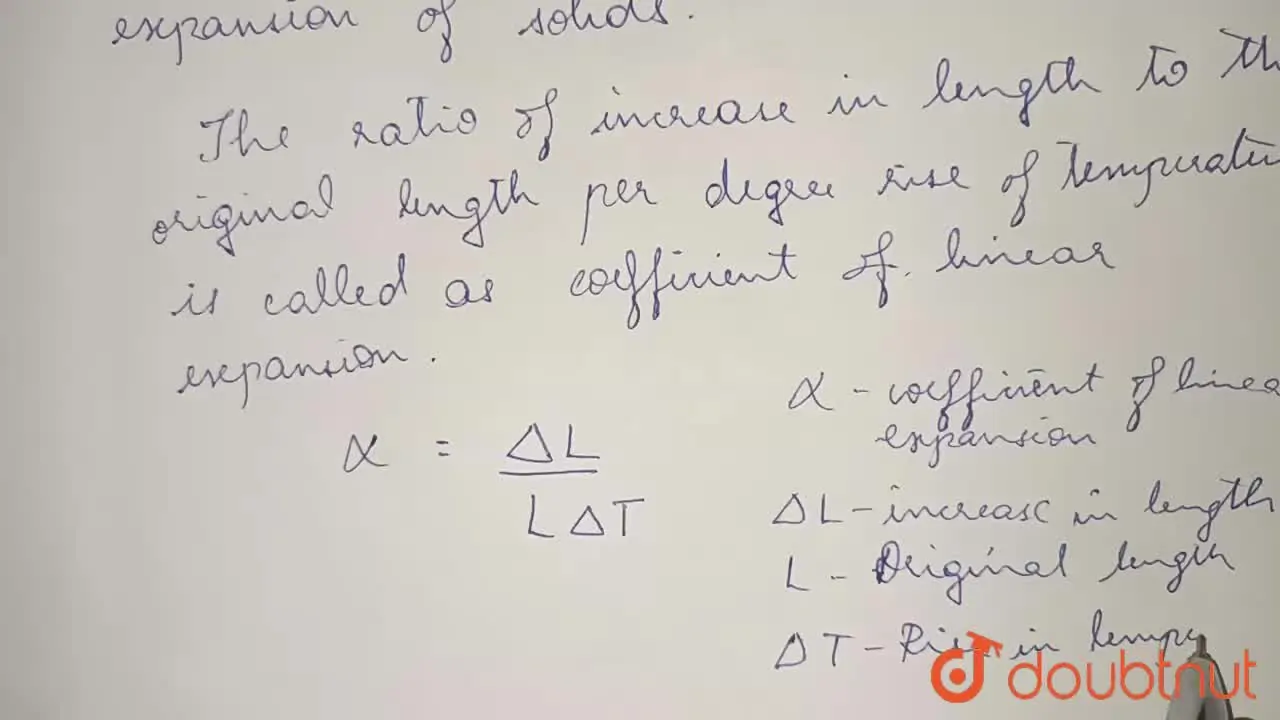 expansion of solids.
The ratio of increase in length to th
original length per degree rise of temperatu
is called as coefficient of linear
expansion.
α = ΔL
LΔT
α - coefficient of linea
expansion
ΔL - increase in length
L - Original length
ΔT - Rise in tempe
doubtnut